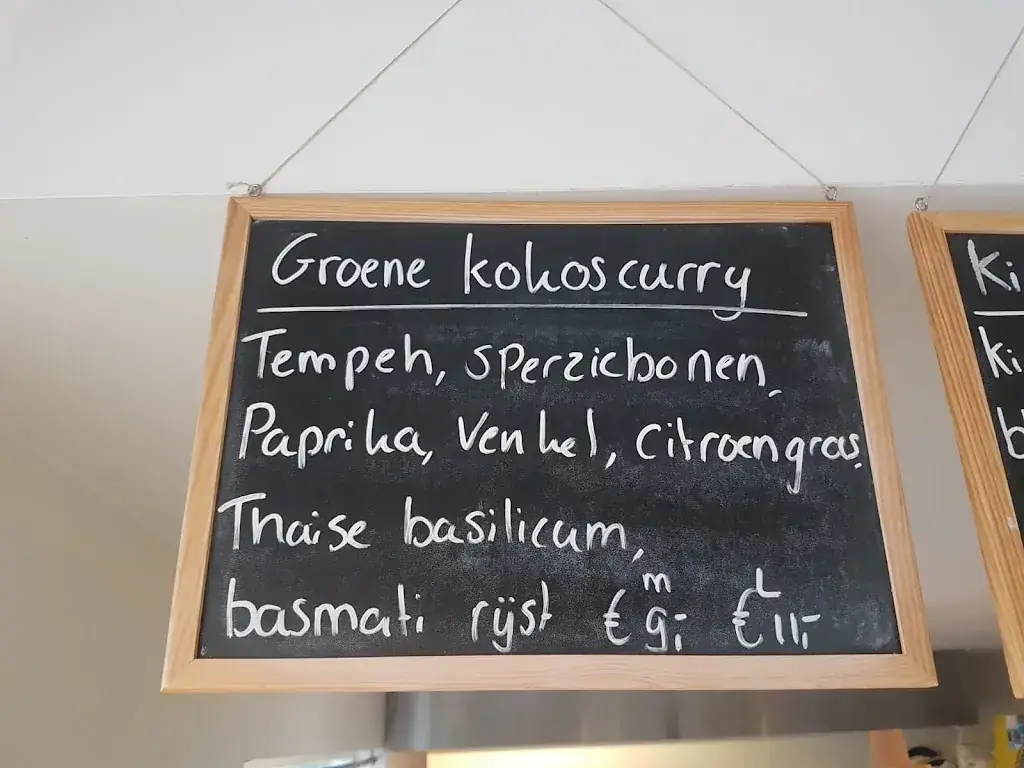 Groene kokoscurry
Tempeh, sperziebonen,
Paprika, Venkel, citroengras,
Thaise basilicum,
m L
basmati rijst € 9,- € 11,-
Ki
ki
b